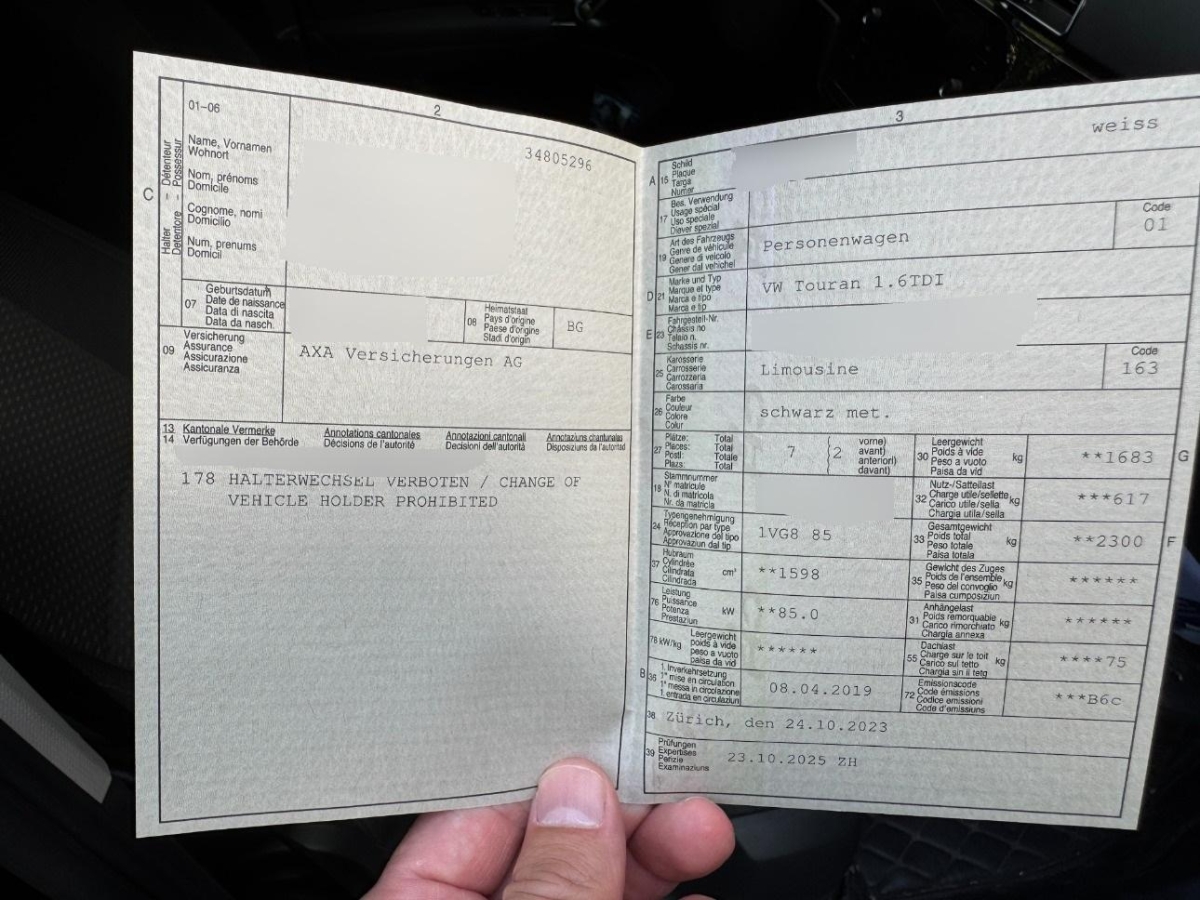 2
01-06
34805296
C
Halter - Détenteur
Detentore - Possessur
Name, Vornamen
Wohnort
Nom, prénoms
Domicile
Cognome, nomi
Domicilio
Num, prenums
Domicil
07
Geburtsdatum
Date de naissance
Data di nascita
Data da nasch.
08
Heimatstaat
Pays d'origine
Paese d'origine
Stadi d'origin
BG
09
Versicherung
Assurance
Assicurazione
Assicuranza
AXA Versicherungen AG
13 Kantonale Vermerke Annotations cantonales Annotazioni cantonali Annotaziuns chantunalas
14 Verfügungen der Behörde Décisions de l'autorité Decisioni dell'autorità Disposiziuns da l'autoritad
178 HALTERWECHSEL VERBOTEN / CHANGE OF
VEHICLE HOLDER PROHIBITED
3
weiss
A 15
Schild
Plaque
Targa
Numer
17
Bes. Verwendung
Usage spécial
Uso speciale
Diever spezial
19
Art des Fahrzeugs
Genre de véhicule
Genere di veicolo
Gener dal vehichel
Personenwagen
Code
01
D 21
Marke und Typ
Marque et type
Marca e tipo
Marca e tip
VW Touran 1.6TDI
E 23
Fahrgestell-Nr.
Châssis no
Telaio n.
Schassis nr.
25
Karosserie
Carrosserie
Carrozzeria
Carossaria
Limousine
Code
163
26
Farbe
Couleur
Colore
Colur
schwarz met.
27
Plätze: Total
Places: Total
Posti: Totale
Plazs: Total
7 (2
vorne)
avant)
anteriori)
davant)
30
Leergewicht
Poids à vide
Peso a vuoto
Paisa da vid
kg
**1683
G
18
Stammnummer
N° matricule
N. di matricola
Nr. da matricla
32
Nutz-/Sattellast
Charge utile/sellette
Carico utile/sella
Chargia utila/sella
kg
***617
24
Typengenehmigung
Réception par type
Approvazione del tipo
Approvaziun dal tip
1VG8 85
33
Gesamtgewicht
Poids total
Peso totale
Paisa totala
kg
**2300
F
37
Hubraum
Cylindrée
Cilindrata
Cilindrada
cm³
**1598
35
Gewicht des Zuges
Poids de l'ensemble
Peso del convoglio
Paisa cumposiziun
kg
******
76
Leistung
Puissance
Potenza
Prestaziun
kW
**85.0
31
Anhängelast
Poids remorquable
Carico rimorchiato
Chargia annexa
kg
******
78 kW/kg
Leergewicht
poids à vide
peso a vuoto
paisa da vid
******
55
Dachlast
Charge sur le toit
Carico sul tetto
Chargia sin il tetg
kg
****75
B 36
1. Inverkehrsetzung
1re mise en circulation
1a messa in circolazione
1. entrada en circulaziun
08.04.2019
72
Emissionscode
Code émissions
Codice emissioni
Code d'emissiuns
***B6c
38 Zürich, den 24.10.2023
39
Prüfungen
Expertises
Perizie
Examinaziuns
23.10.2025 ZH